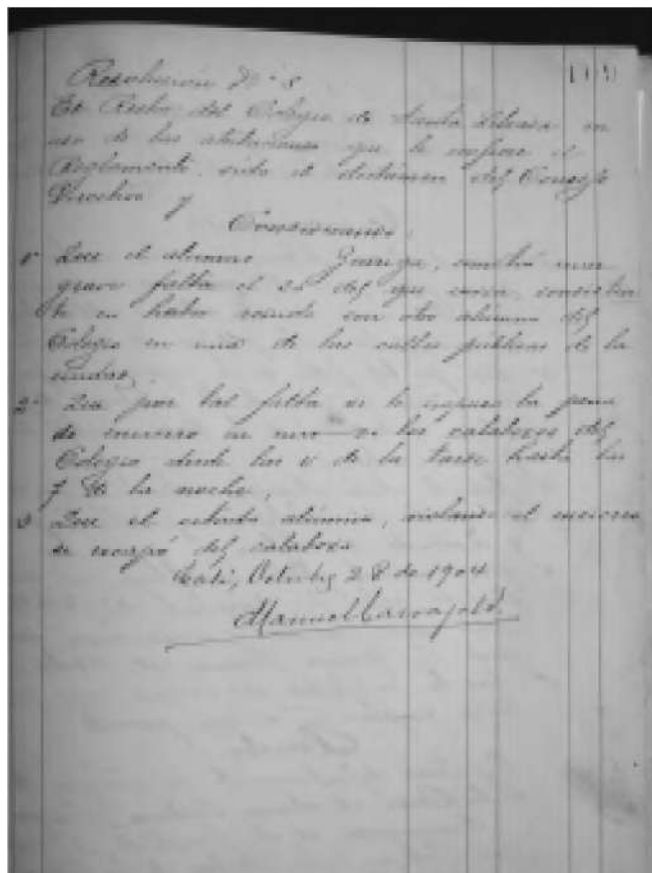 Resolución Nº 8
109
El Rector del Colegio de Santa Librada en
uso de las atribuciones que le confiere el
Reglamento, oído el dictámen del Consejo
Directivo y
Considerando:
1º Que el alumno Zuñiga, cometió una
grave falta el 26 del que cursa, consisten
te en haber reñido con otro alumno del
Colegio en una de las calles públicas de la
ciudad,
2º Que por tal falta se le impuso la pena
de encierro en uno de los calabozos del
Colegio desde las de la tarde hasta las
7 de la noche,
3 Que el citado alumno, violando el encierro
se escapó del calabozo
Cali, Octubre 28 de 1904
Manuel Carvajal